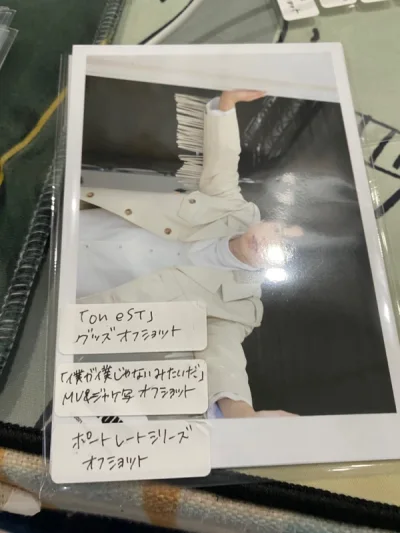 「on eST」
グッズ オフショット
「僕が僕じゃないみたいだ」
MV&ジャケ写 オフショット
ポートレートシリーズ
オフショット